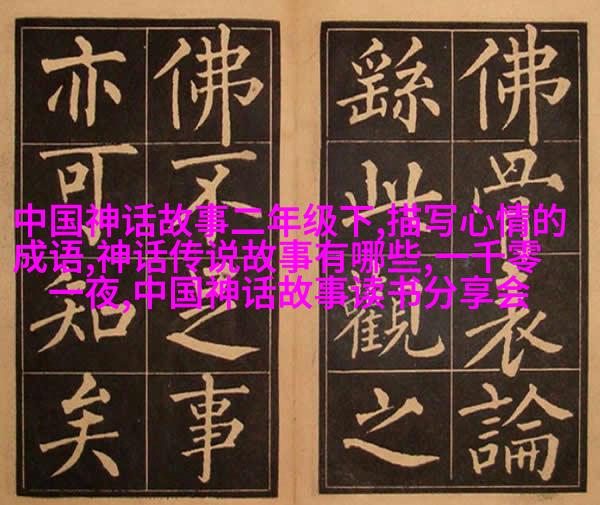 中国神话故事二年级下,描写心情的
成语,神话传说故事有哪些,一千零
一夜,中国神话故事读书分享会
佛骨論
繇此觀之
佛不事
亦可知矣